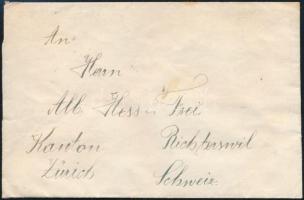 An
Herrn
Alb. Hess Frei
Kanton Richterswil
Zürich Schweiz.